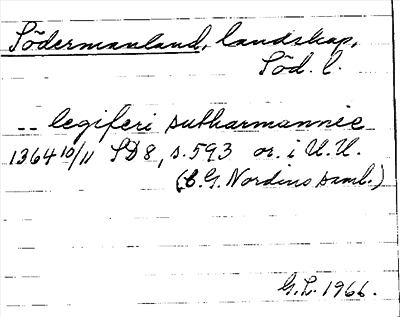 Södermanland, landskap,
Söd. l.
-- legiferi sutharmannie
1364 10/11 SD 8, s. 593 or. i U.U.
(C.G. Nordins saml.)
G.L. 1966.